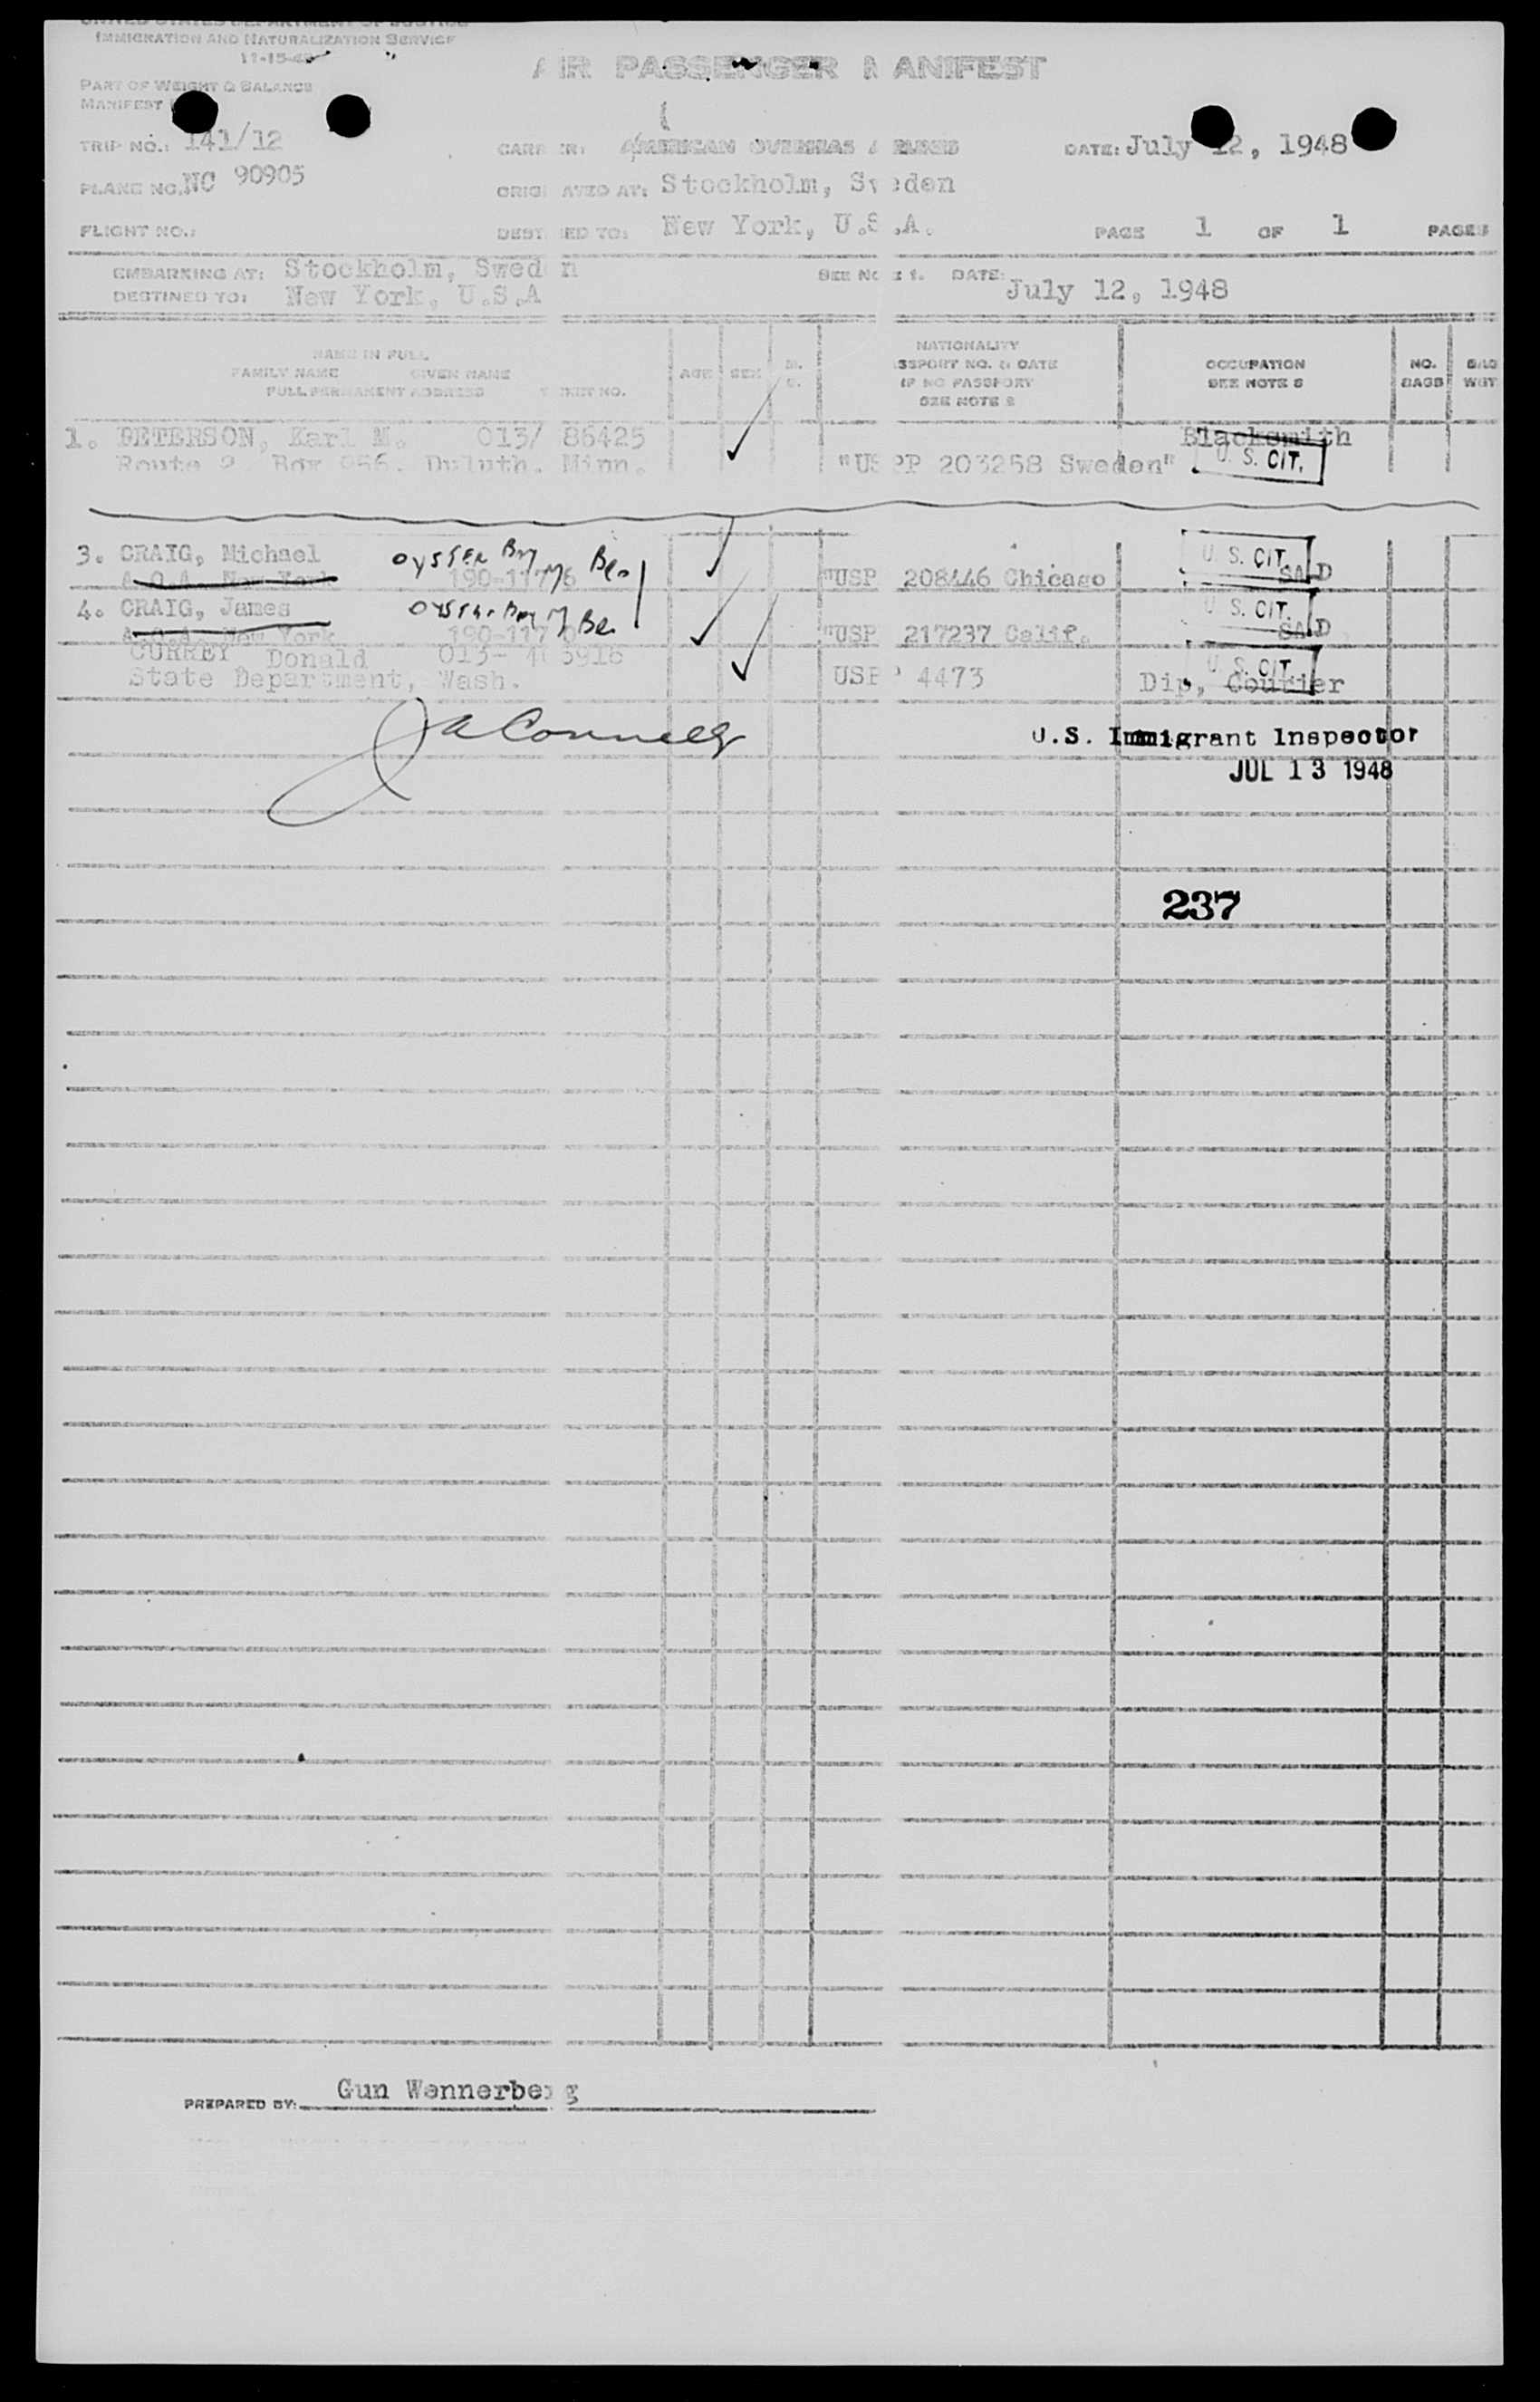 UNITED STATES DEPARTMENT OF JUSTICE
IMMIGRATION AND NATURALIZATION SERVICE
11-15-4
AIR PASSENGER MANIFEST
PART OF WEIGHT & BALANCE
MANIFEST
TRIP NO.: 141/12
CARRIER: AMERICAN OVERSEAS AIRLINES
DATE: July 12, 1948
PLANE NO. NC 90905
ORIGINATED AT: Stockholm, Sweden
FLIGHT NO.:
DESTINED TO: New York, U.S.A.
PAGE 1 OF 1 PAGES
EMBARKING AT: Stockholm, Sweden
SEE NOTE 1. DATE: July 12, 1948
DESTINED TO: New York, U.S.A
NAME IN FULL
FAMILY NAME GIVEN NAME
FULL PERMANENT ADDRESS TICKET NO.
AGE SEX M. S.
NATIONALITY
PASSPORT NO. & DATE
IF NO PASSPORT
SEE NOTE 2
OCCUPATION
SEE NOTE 3
NO. BAGS
BAG WGT
1. PETERSON, Karl M. 013/ 86425 Blacksmith
Route 2 Box 956. Duluth. Minn. "USPP 203258 Sweden" U. S. CIT.
3. CRAIG, Michael OYSTER Bay U. S. CIT.
A.O.A. New York "USP 208446 Chicago
4. CRAIG, James U. S. CIT.
A.O.A. New York "USP 217237 Calif.
CURREY Donald U. S. CIT.
State Department, Wash. USPP 4473 Dip, Courier
JA Connelly
U.S. Immigrant Inspector
JUL 13 1948
237
PREPARED BY: Gun Wennerberg